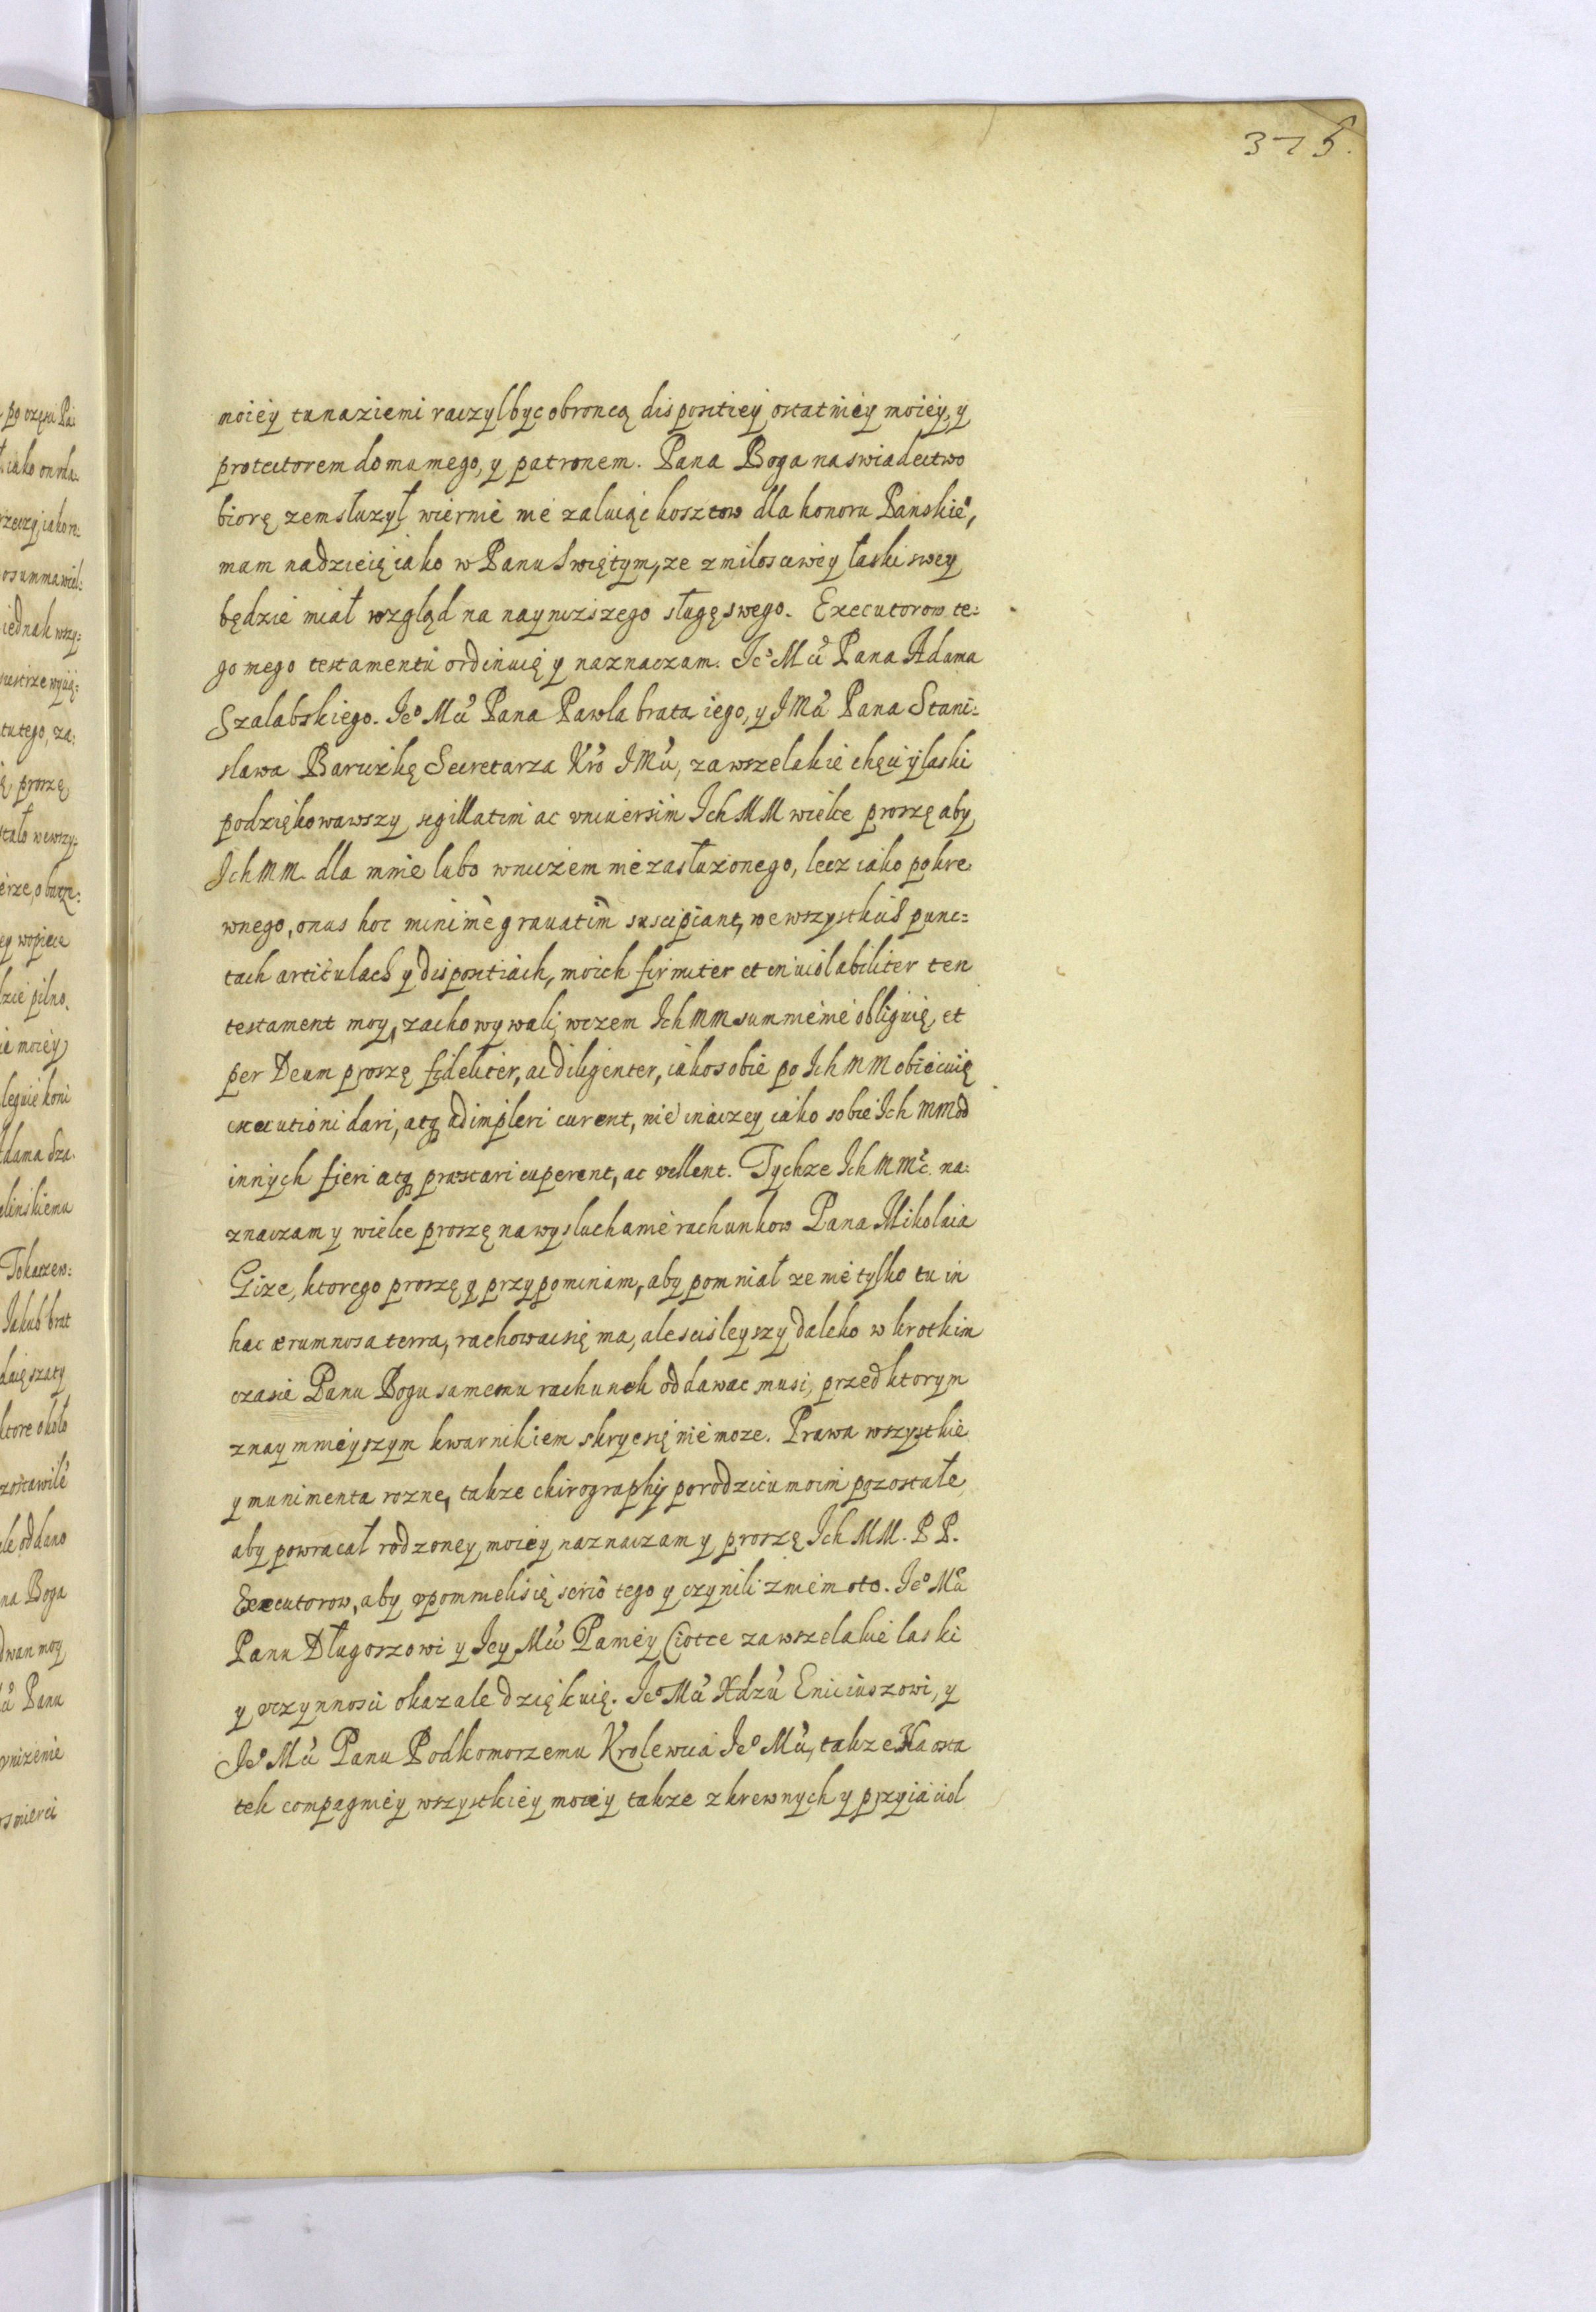 375.
moiéy tu na ziemi raczyl byc obroncą dispositiey ostatniéy moiéy, y
protectorem domu mego, y patronem. Pana Boga na swiadectwo
biorę zem słuzył wiernie nie zaluiąc kosztow dla honoru Panskieº,
mam nadzieię iako w Panu Swiętym, ze z milosciwey łaski swey
będzie miał wzgląd na nayniższego sługę swego. Executorow te:
go mego testamentu ordinuię y naznaczam. Jeº Mci Pana Adama
Szalabskiego. Jeº Mci Pana Pawla brata iego, y J Mci Pana Stani:
slawa Baruzkę Secretarza Kro J Mci, za wszelakie chęci y laski
podziękowawszy, sigillatim ac vniuersim Ich MM wielce proszę aby
Ich MM. dla mnie lubo wniczem nie zasłuzonego, lecz iako pokre
wnego, onus hoc minimè grauatim suscipiant, we wszystkich punc:
tach articulach y dispositiach, moich firmiter et inuiolabiliter ten
testament moy, zachowywali, wczem Ich MM summémé obliguię, et
per Deum proszę fideliter, ac diligenter, iako sobie po Ich MM obiecuię
executioni dari, atq adimpleri curent, nie inaczey iako sobie Ich MM od
innych fieri atq præstari cuperent, ac vellent. Tychze Ich MMć. na:
znaczam y wielce proszę na wysluchanié rachunkow Pana Mikolaia
Gize, ktorego proszę y przypominam, aby pomniał ze nié tylko tu in
hac ærumnosa terra, rachowac się ma, ale scisleyszy daleko w krotkim
czasie Panu Bogu samemu rachunek oddawac musi, przed ktorym
z naymnieyszym kwarnikiem skryc się nié moze. Prawa wszystkie
y munimenta rozne, takze chirographÿ po rodzicu moim pozostałe
aby powracał rodzoney moiey naznaczam y proszę Ich MM. PP.
Executorow, aby vpomnieli się seriò tego y czynili z niém oto. Jeº Mci
Panu Długoszowi y Jey Mci Paniéy Ciotce za wszelakie laski
y vczynnosci okazale dziękuię. Jeº Mci Xdzu Eniciuszowi, y
Jeº Mci Panu Podkomorzemu Krolewica Jeº Mci, takze Na osta
tek compagniéy wszystkiéy moiey takze z krewnych y przyiaciol